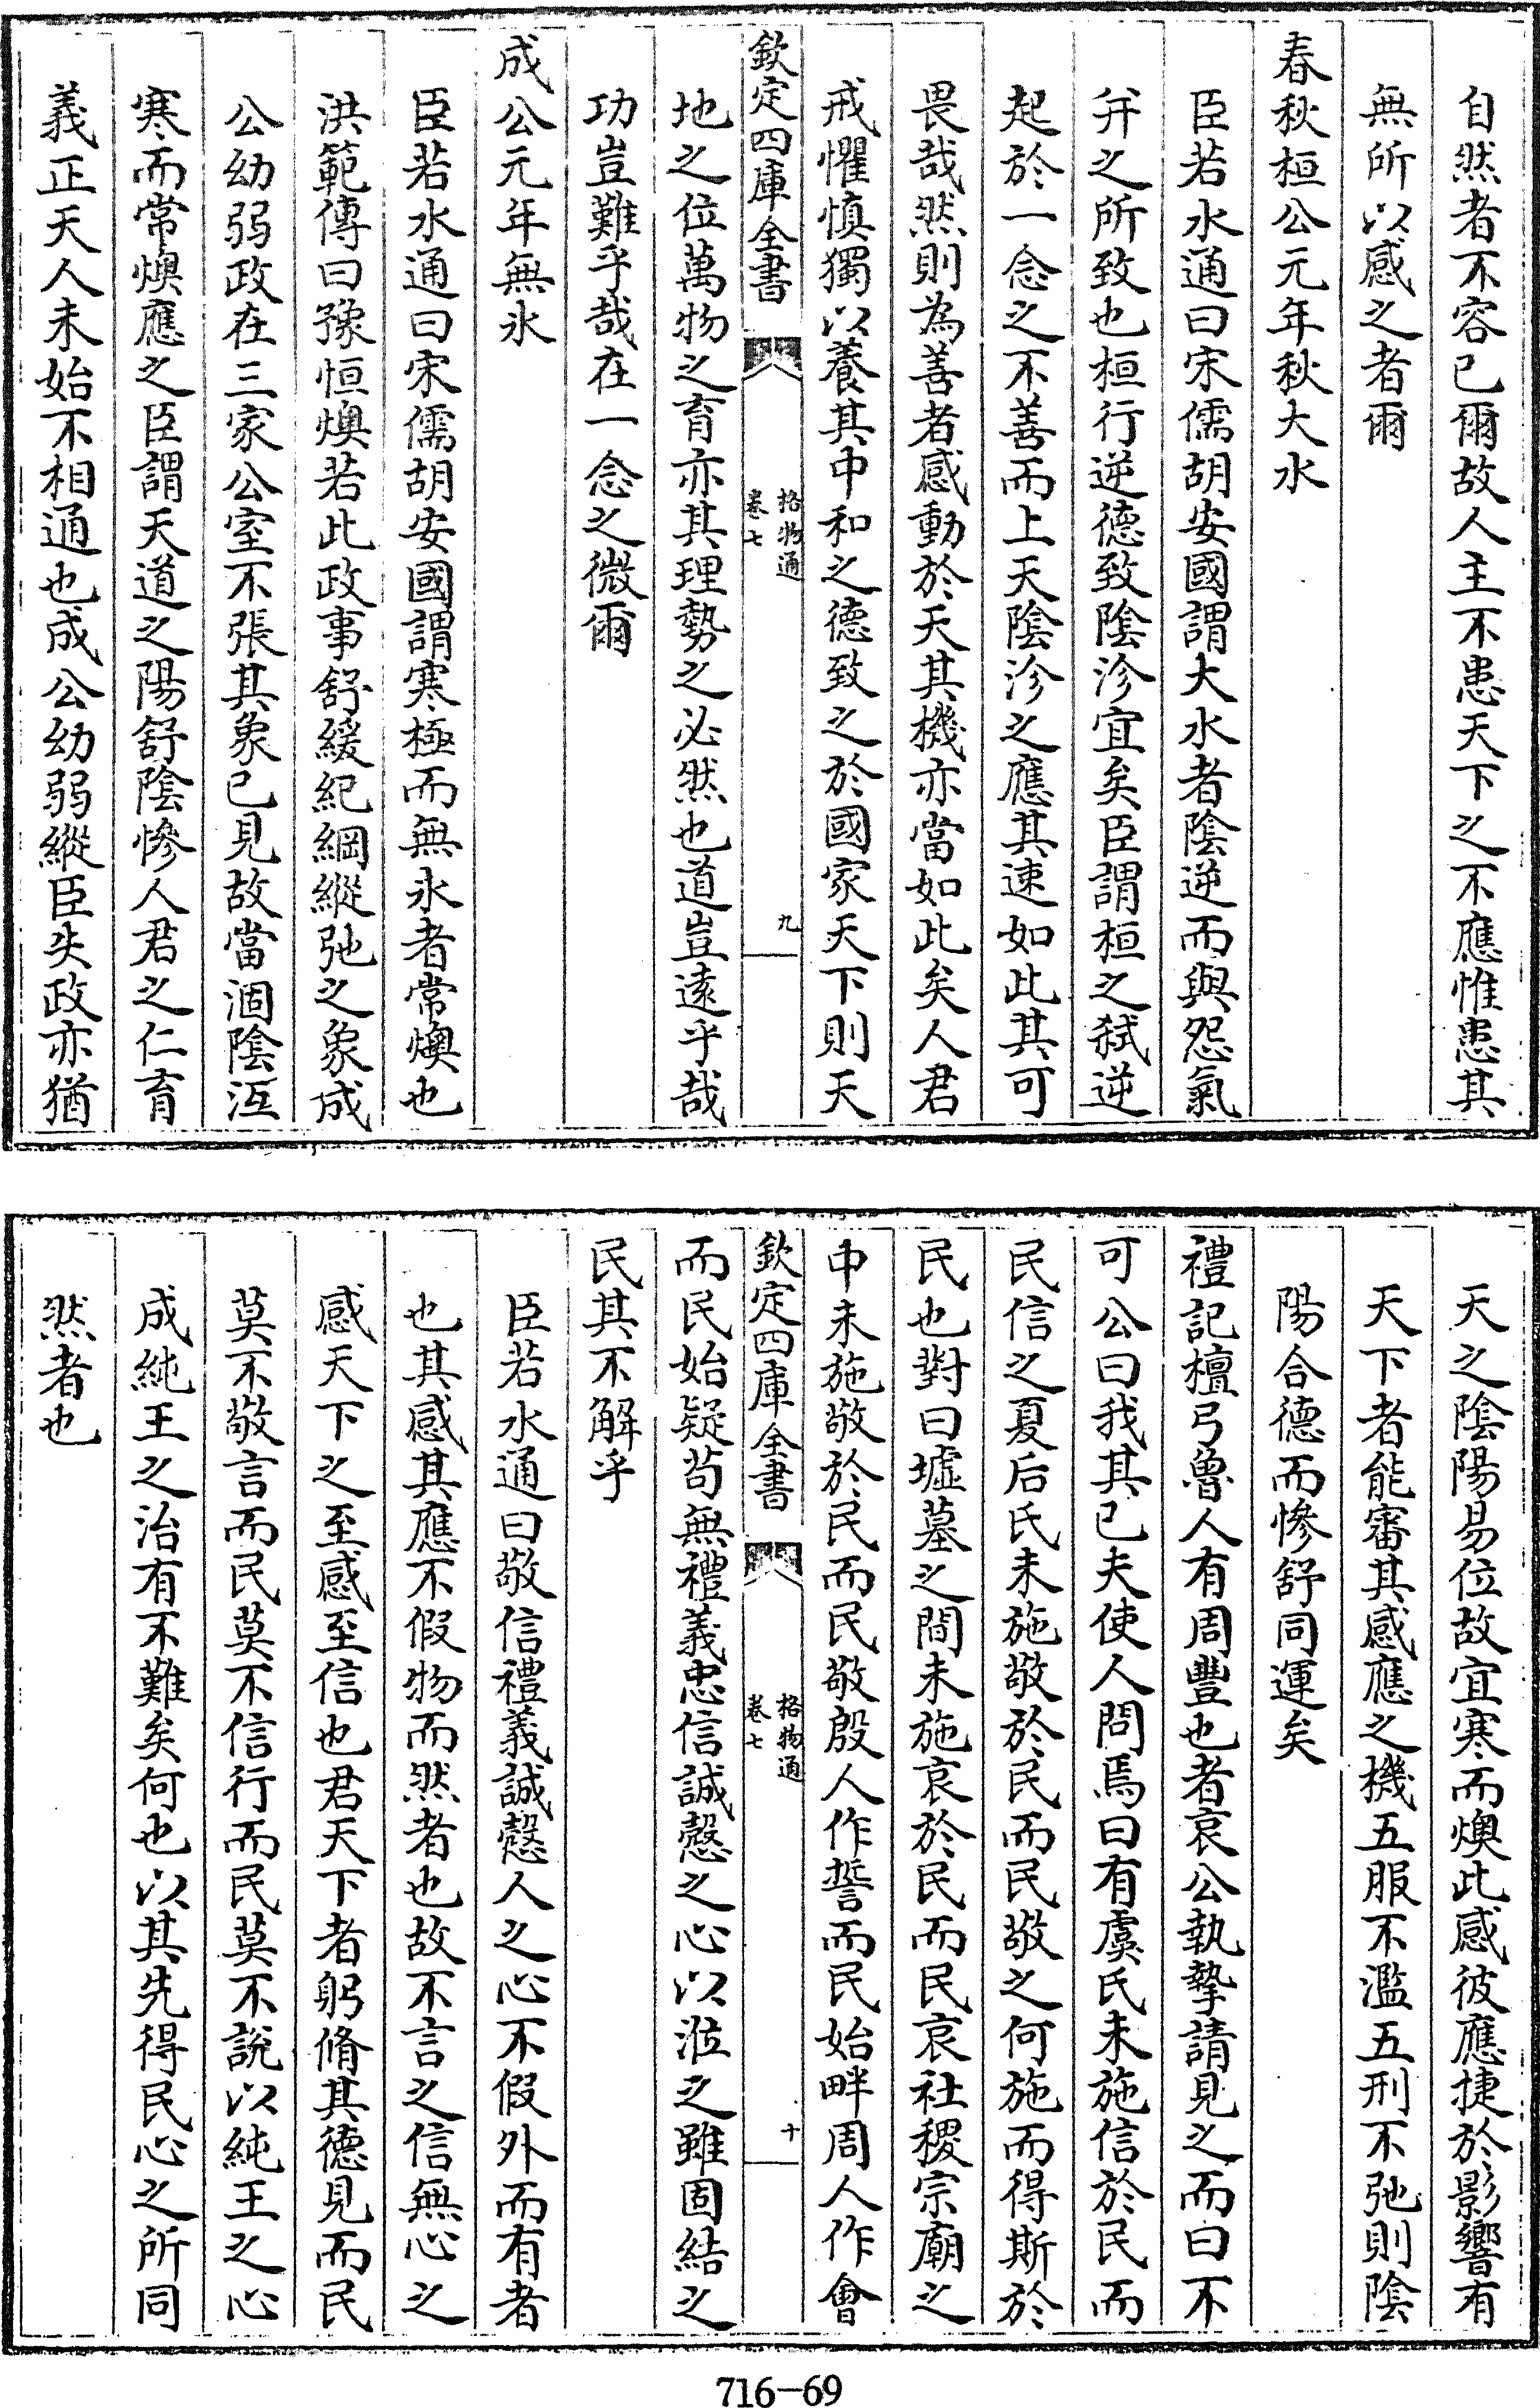 自然者不容已爾故人主不患天下之不應惟患其
無所以感之者爾
春秋桓公元年秋大水
臣若水通曰宋儒胡安國謂大水者陰逆而與怨氣
并之所致也桓行逆德致陰沴宜矣臣謂桓之弑逆
起於一念之不善而上天陰沴之應其速如此其可
畏哉然則為善者感動於天其機亦當如此矣人君
戒懼慎獨以養其中和之德致之於國家天下則天
欽定四庫全書
格物通
卷七
九
地之位萬物之育亦其理勢之必然也道豈遠乎哉
功豈難乎哉在一念之微爾
成公元年無冰
臣若水通曰宋儒胡安國謂寒極而無冰者常燠也
洪範傳曰豫恒燠若此政事舒緩紀綱縱弛之象成
公幼弱政在三家公室不張其象已見故當涸陰沍
寒而常燠應之臣謂天道之陽舒陰慘人君之仁育
義正天人未始不相通也成公幼弱縱臣失政亦猶
天之陰陽易位故宜寒而燠此感彼應捷於影響有
天下者能審其感應之機五服不濫五刑不弛則陰
陽合德而慘舒同運矣
禮記檀弓魯人有周豐也者哀公執摯請見之而曰不
可公曰我其已夫使人問焉曰有虞氏未施信於民而
民信之夏后氏未施敬於民而民敬之何施而得斯於
民也對曰墟墓之間未施哀於民而民哀社稷宗廟之
中未施敬於民而民敬殷人作誓而民始畔周人作會
欽定四庫全書
格物通
卷七
十
而民始疑茍無禮義忠信誠慤之心以涖之雖固結之
民其不解乎
臣若水通曰敬信禮義誠慤人之心不假外而有者
也其感其應不假物而然者也故不言之信無心之
感天下之至感至信也君天下者躬脩其德見而民
莫不敬言而民莫不信行而民莫不說以純王之心
成純王之治有不難矣何也以其先得民心之所同
然者也
716-69